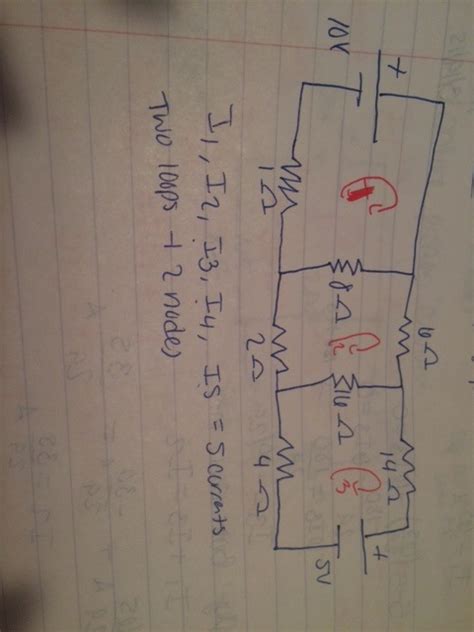 10V
+
1
1Ω
8Ω
6Ω
2
2Ω
16Ω
14Ω
3
4Ω
5V
+
I1, I2, I3, I4, I5 = 5 currents
Two loops + 2 nodes